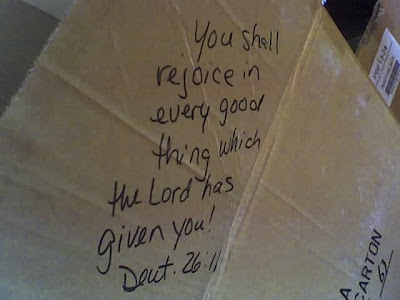 You shall
rejoice in
every good
thing which
the Lord has
given you!
Deut. 26:11
A
CARTON